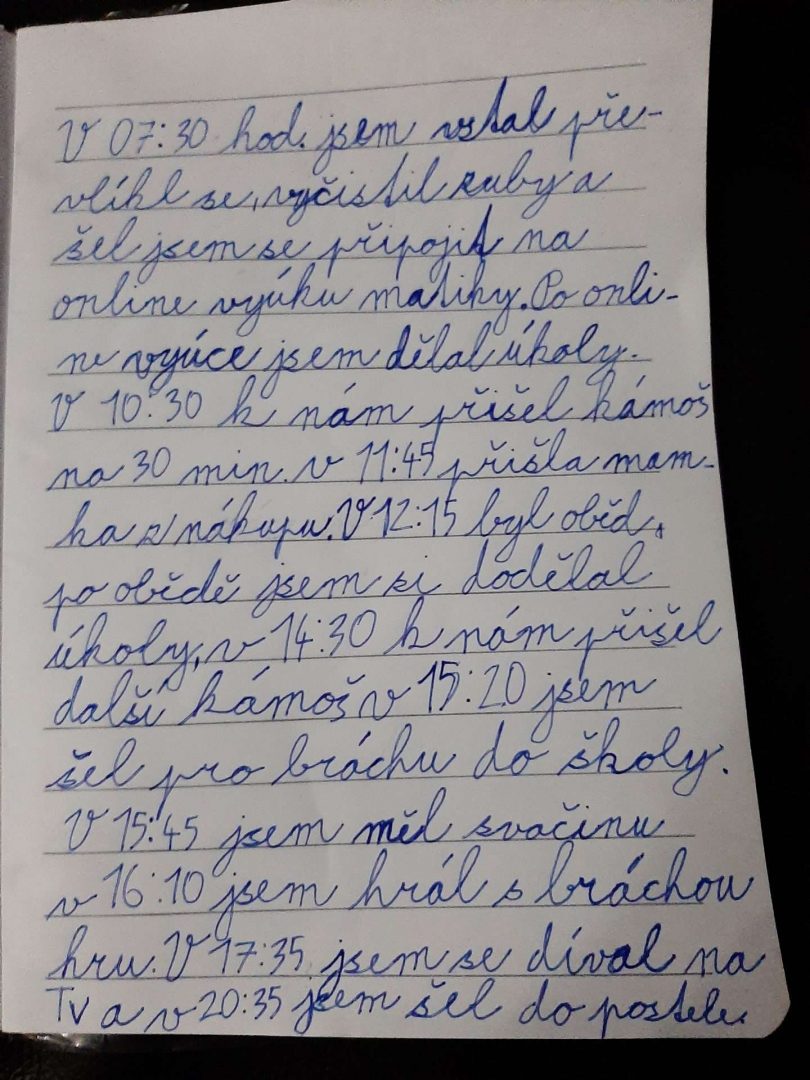 V 07:30 hod. jsem vstal pře-
vlíkl se, vyčistil zuby a
šel jsem se připojit na
online vyúku matiky. Po onli-
ne vyúce jsem dělal úkoly.
V 10:30 k nám přišel kámoš
na 30 min. v 11:45 přišla mam-
ka z nákupu. V 12:15 byl oběd,
po obědě jsem si dodělal
úkoly, v 14:30 k nám přišel
další kámoš v 15:20 jsem
šel pro bráchu do školy.
V 15:45 jsem měl svačinu
v 16:10 jsem hrál s bráchou
hru. V 17:35 jsem se díval na
TV a v 20:35 jsem šel do postele.